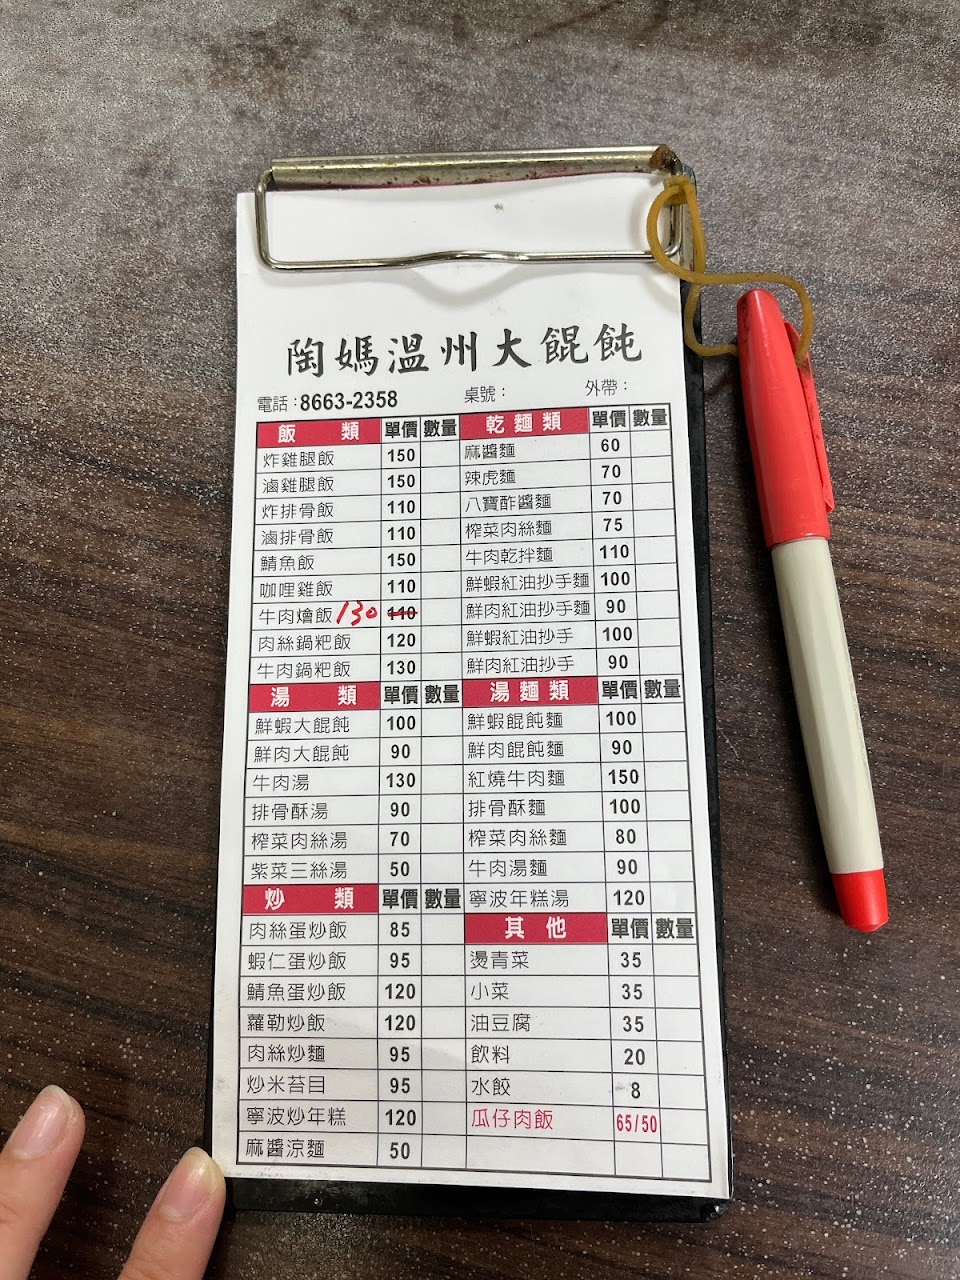 陶媽溫州大餛飩
電話：8663-2358 桌號： 外帶：
飯類 單價 數量
炸雞腿飯 150
滷雞腿飯 150
炸排骨飯 110
滷排骨飯 110
鯖魚飯 150
咖哩雞飯 110
牛肉燴飯 130 110
肉絲鍋粑飯 120
牛肉鍋粑飯 130
湯類 單價 數量
鮮蝦大餛飩 100
鮮肉大餛飩 90
牛肉湯 130
排骨酥湯 90
榨菜肉絲湯 70
紫菜三絲湯 50
炒類 單價 數量
肉絲蛋炒飯 85
蝦仁蛋炒飯 95
鯖魚蛋炒飯 120
蘿勒炒飯 120
肉絲炒麵 95
炒米苔目 95
寧波炒年糕 120
麻醬涼麵 50
乾麵類 單價 數量
麻醬麵 60
辣虎麵 70
八寶酢醬麵 70
榨菜肉絲麵 75
牛肉乾拌麵 110
鮮蝦紅油抄手麵 100
鮮肉紅油抄手麵 90
鮮蝦紅油抄手 100
鮮肉紅油抄手 90
湯麵類 單價 數量
鮮蝦餛飩麵 100
鮮肉餛飩麵 90
紅燒牛肉麵 150
排骨酥麵 100
榨菜肉絲麵 80
牛肉湯麵 90
寧波年糕湯 120
其他 單價 數量
燙青菜 35
小菜 35
油豆腐 35
飲料 20
水餃 8
瓜仔肉飯 65/50